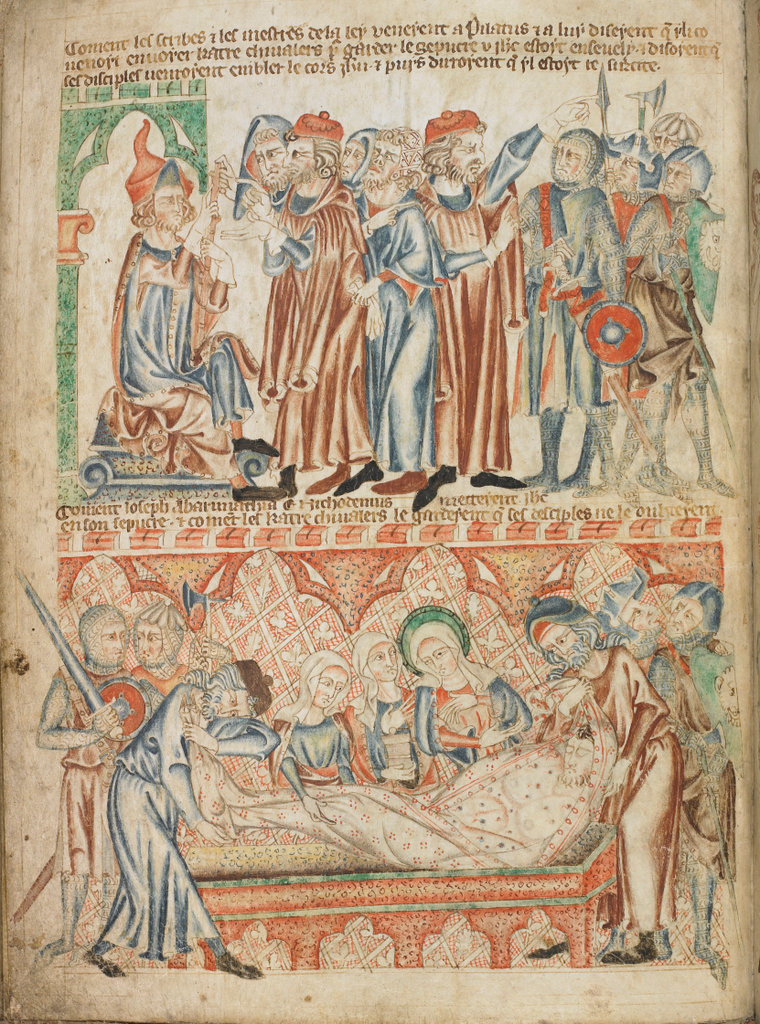 Coment les scribes ⁊ les mestres de la ley venerent a Pilatus ⁊ a luy diseyent q̄ yl co
venoyt envoyer katre chivalers p̄ garder le sepucre v jhc estoyt ensevely ⁊ disoyent q̄
ses disciples vendroyent embler le cors ⁊ puys diroyent q̄ yl estoyt re surcite.
Coment Joseph Abarimathia ⁊ Nichodemus metterent jhc
en son sepucre ⁊ coment les katre chivalers le garderent q̄ ses desciples ne le